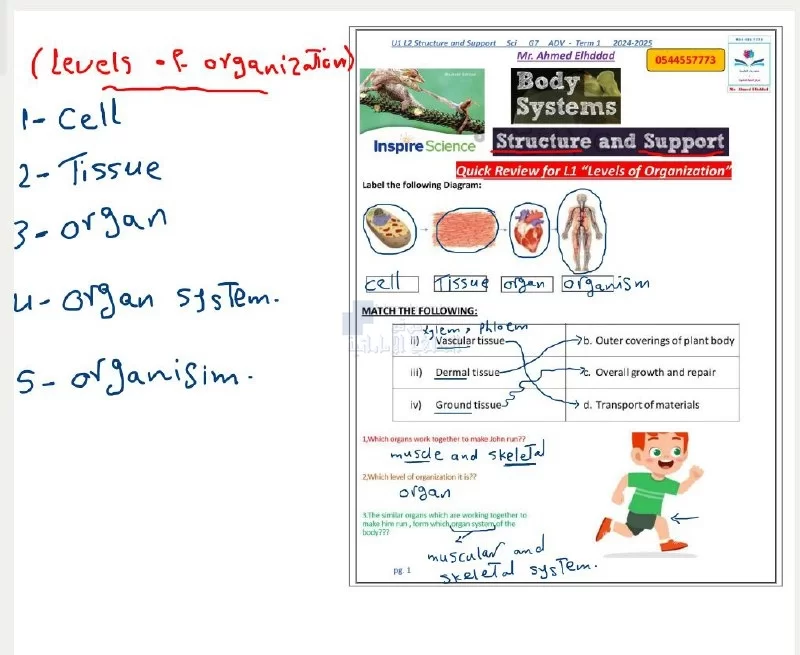 (Levels of organization)
1- Cell
2- Tissue
3- organ
4- organ system.
5- organisim.
U1 L2 Structure and Support Sci G7 ADV - Term 1 2024-2025
Mr. Ahmed Elhddad
0544557773
Mr. Ahmed Elhddad
Body
Systems
Inspire Science
Structure and Support
Quick Review for L1 "Levels of Organization"
Label the following Diagram:
cell Tissue organ organism
MATCH THE FOLLOWING:
xylem, phloem
ii) Vascular tissue b. Outer coverings of plant body
iii) Dermal tissue c. Overall growth and repair
iv) Ground tissue d. Transport of materials
1,Which organs work together to make John run??
muscle and skeletal
2,Which level of organization it is??
organ
3.The similar organs which are working together to
make him run , form which organ system of the
body???
muscular and
skeletal system.
pg. 1